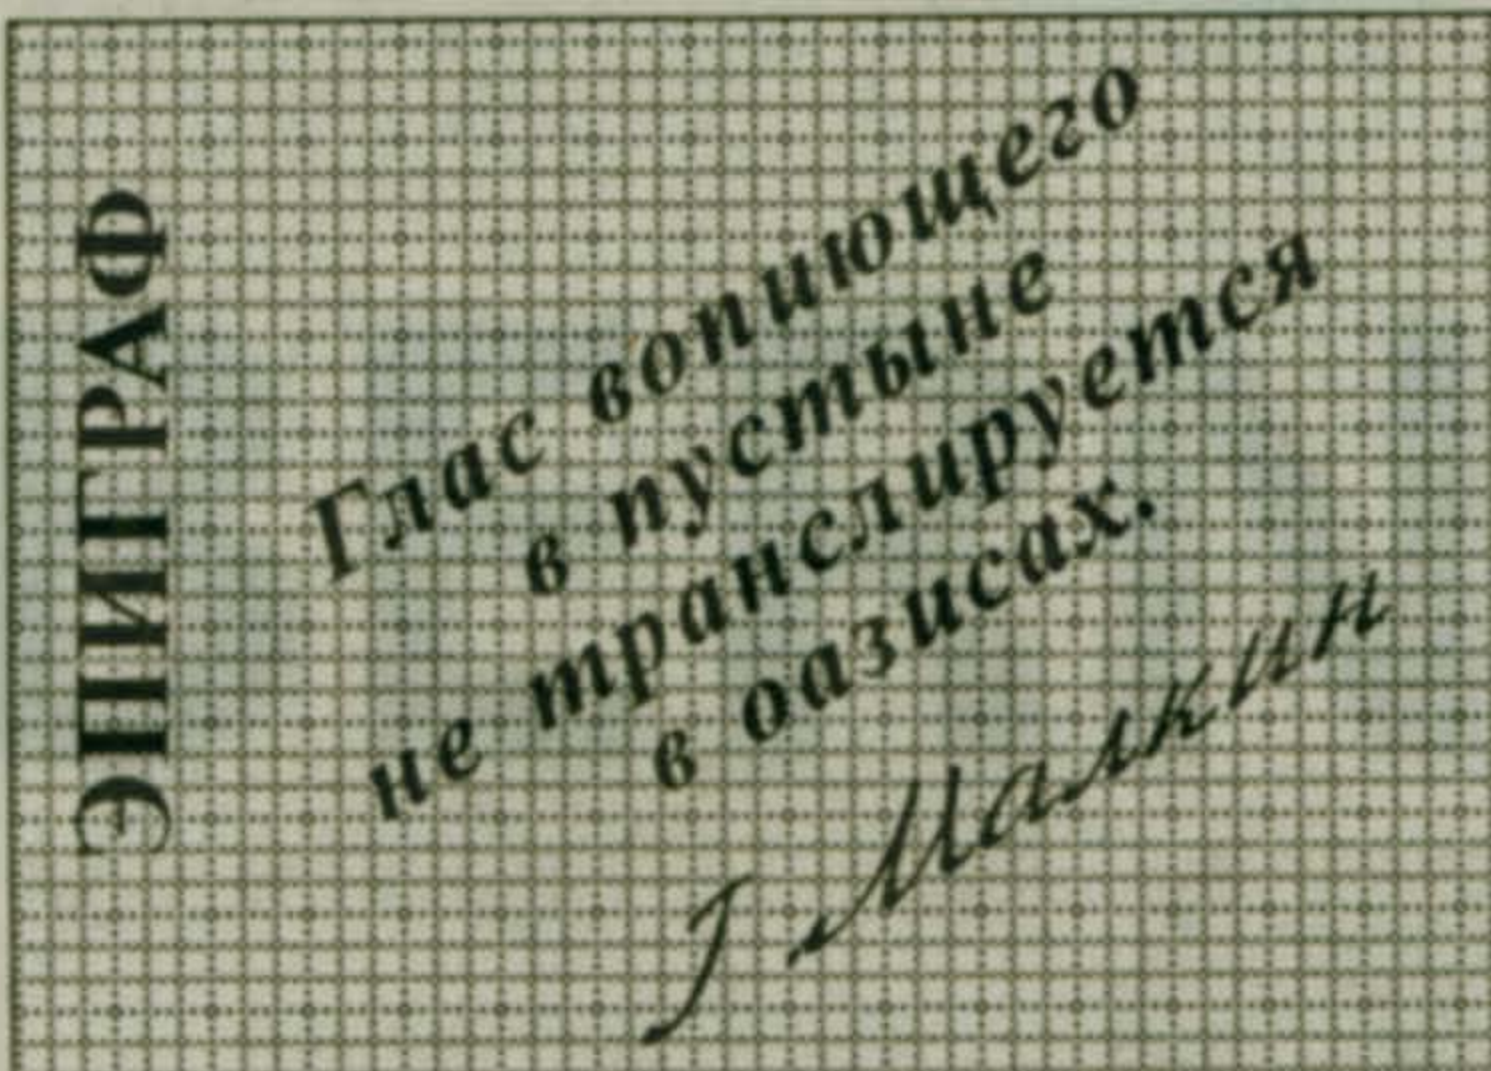 ЭПИГРАФ
Глас вопиющего
в пустыне
не транслируется
в оазисах.
Г Малкин